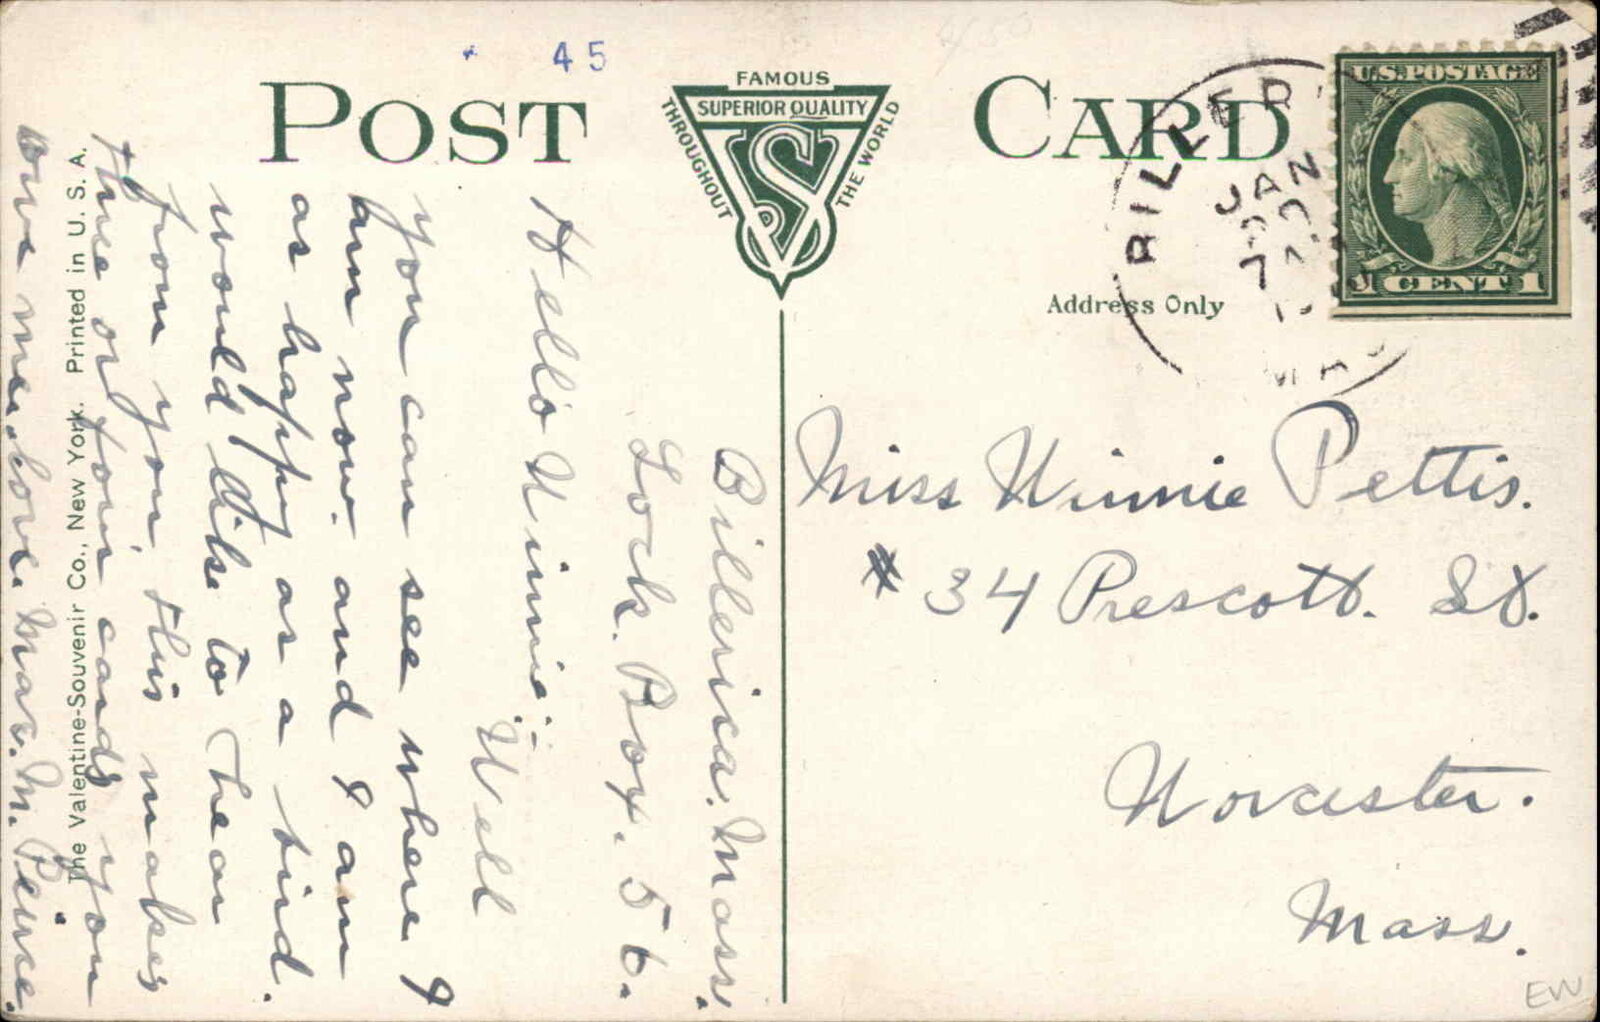 45
POST CARD
FAMOUS
SUPERIOR QUALITY
THROUGHOUT
THE WORLD
VS
U.S. POSTAGE
1 CENT 1
JAN
Address Only
Miss Winnie Pettis.
# 34 Prescott. St.
Worcester.
Mass.
EW
Billerica. Mass.
Lock. Box. 56.
Hello Winnie:
Well
you can see where I
am now. and I am
as happy as a bird.
would like to hear
from you this makes
three or four cards you
owe me. love. M. Peirce.
The Valentine-Souvenir Co., New York. Printed in U. S. A.